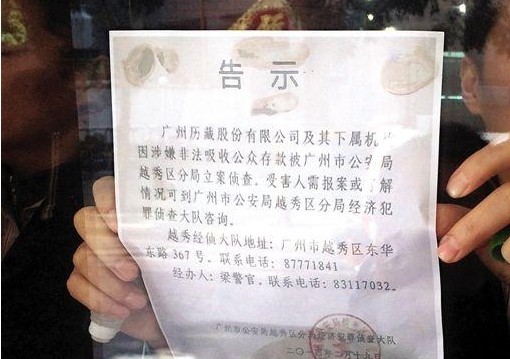 告 示
广州历藏股份有限公司及其下属机
因涉嫌非法吸收公众存款被广州市公安局
越秀区分局立案侦查。受害人需报案或了解
情况可到广州市公安局越秀区分局经济犯
罪侦查大队咨询。
越秀经侦大队地址：广州市越秀区东华
东路367号。联系电话：87771841
经办人：梁警官。联系电话：83117032。
广州市公安局越秀区分局经济犯罪侦查大队
二〇一 年 月十九日